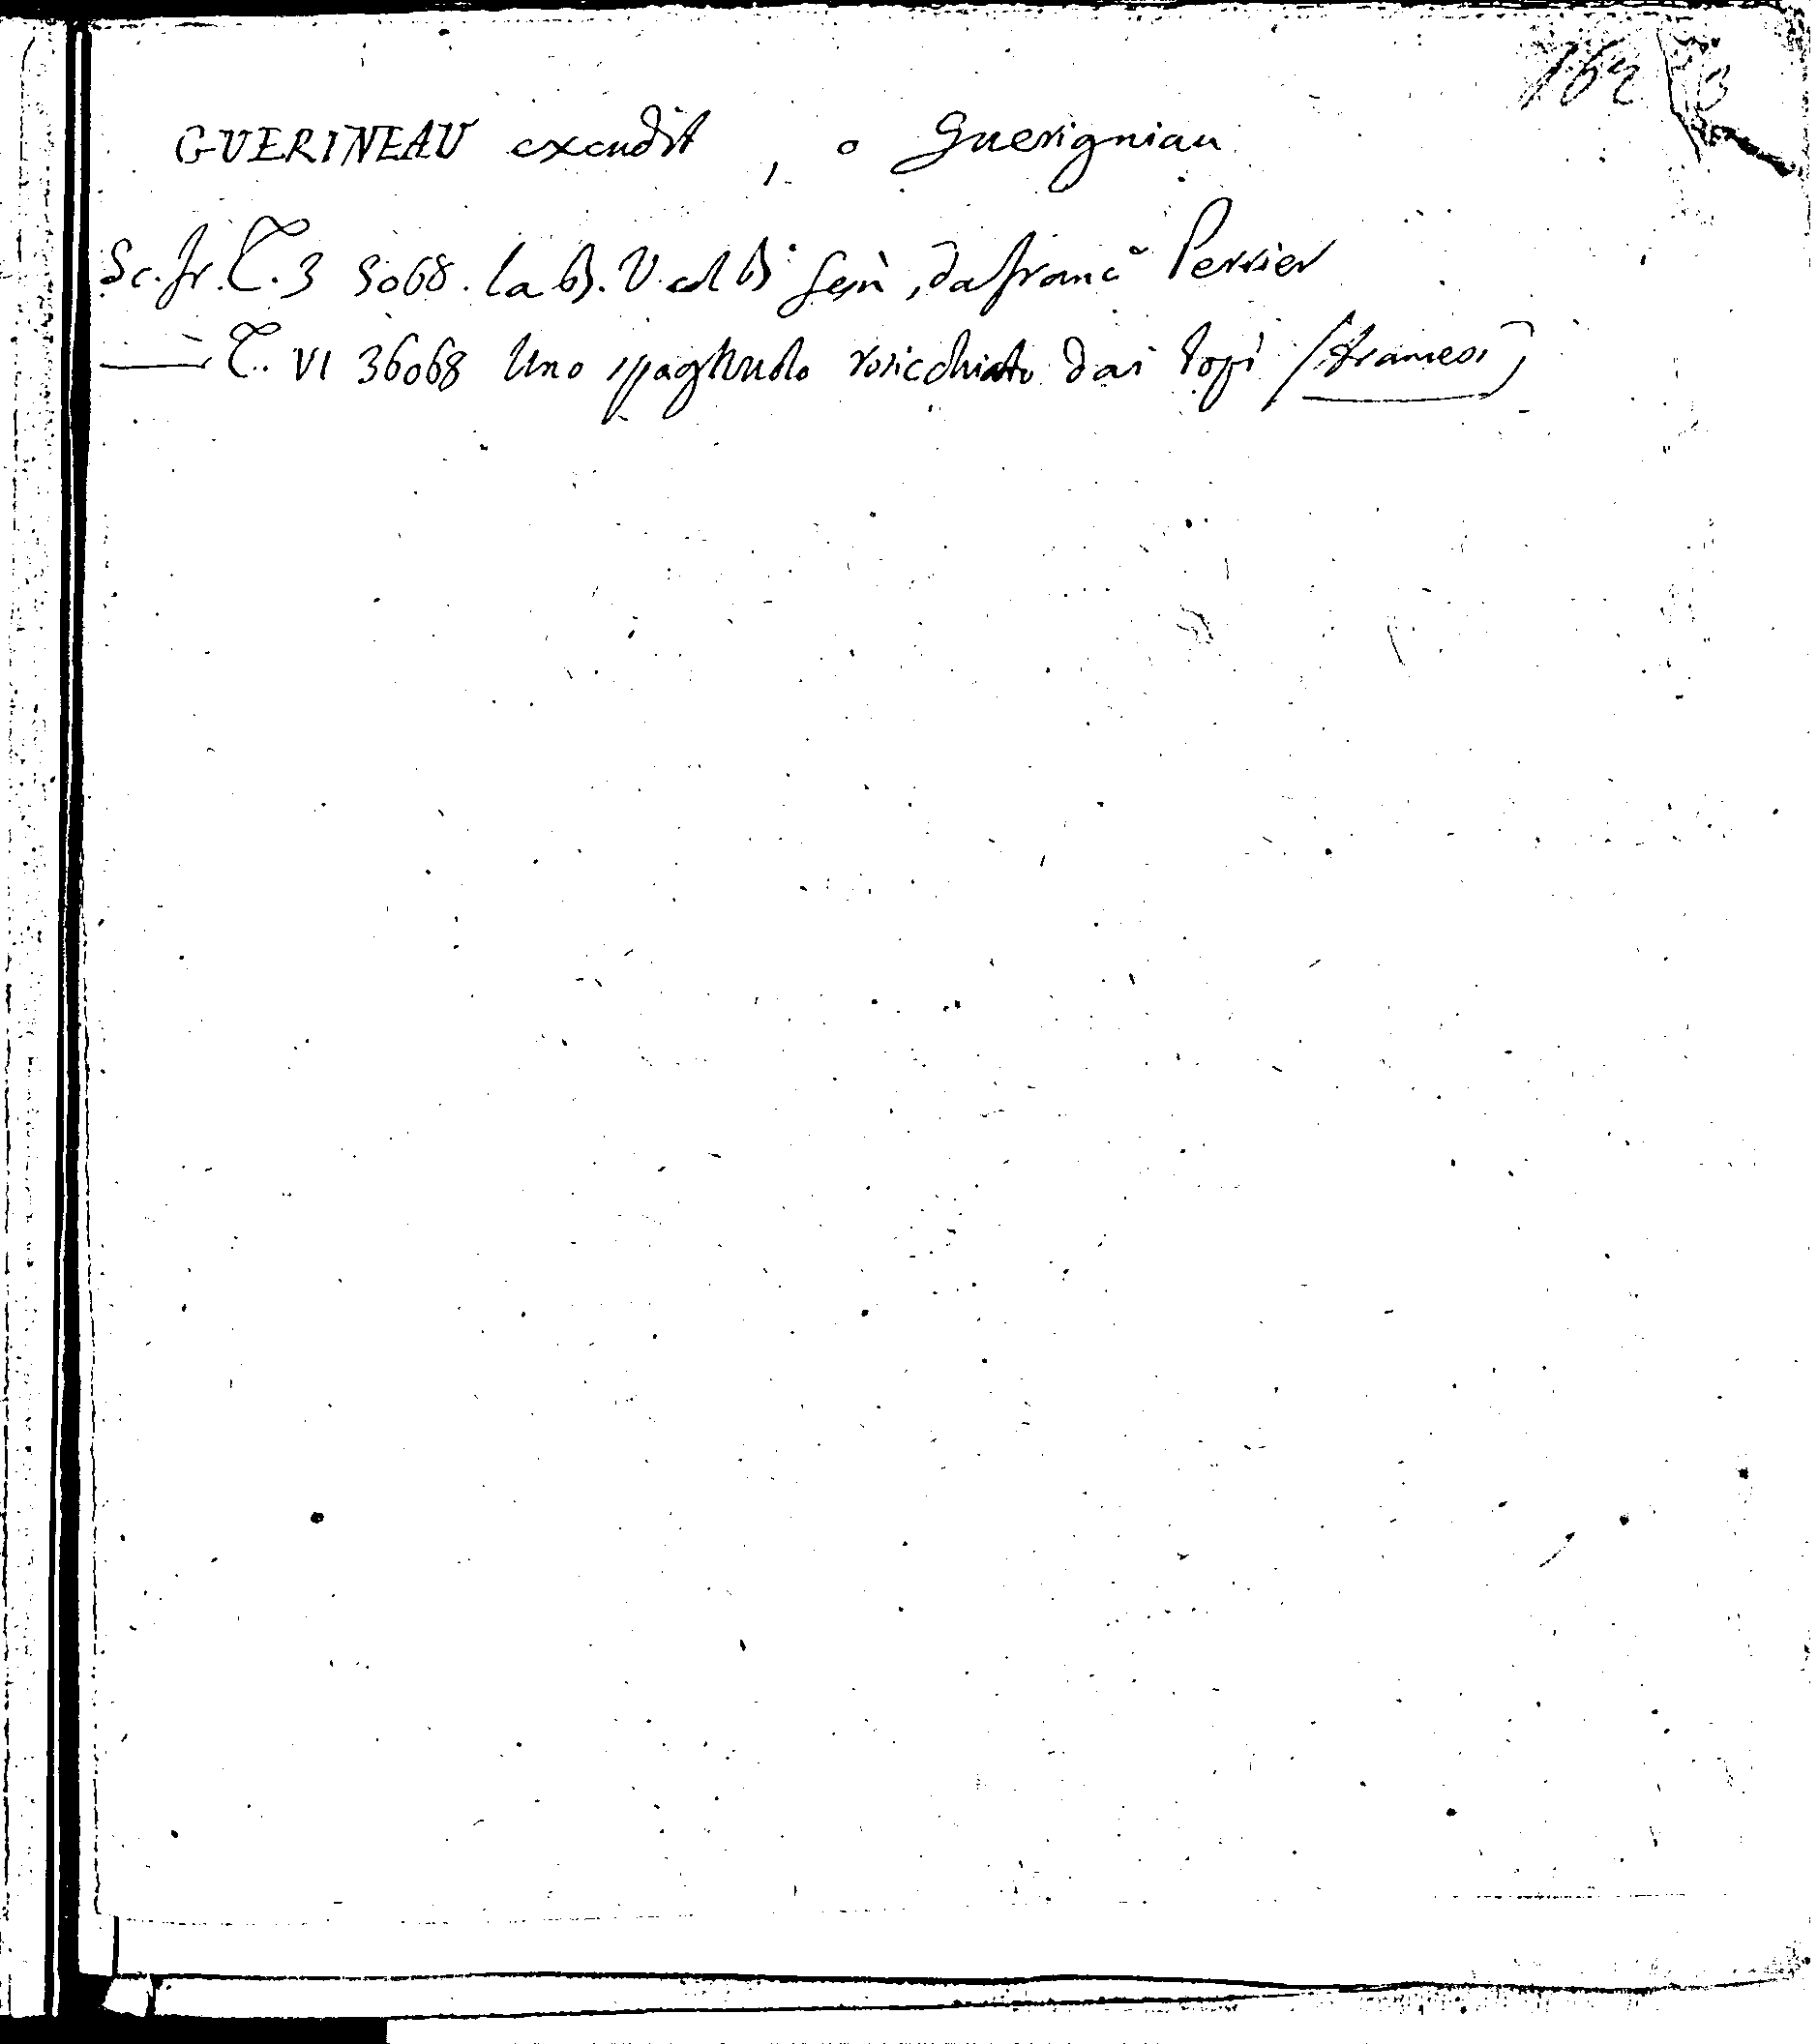 164
GUERINEAU excudit , o Guerigniau
Sc. fr. T. 3 3068. la B. V. col B. Gesù, da franc° Perrier
——— T. VI 36068 Uno spagnuolo rosicchiato dai topi